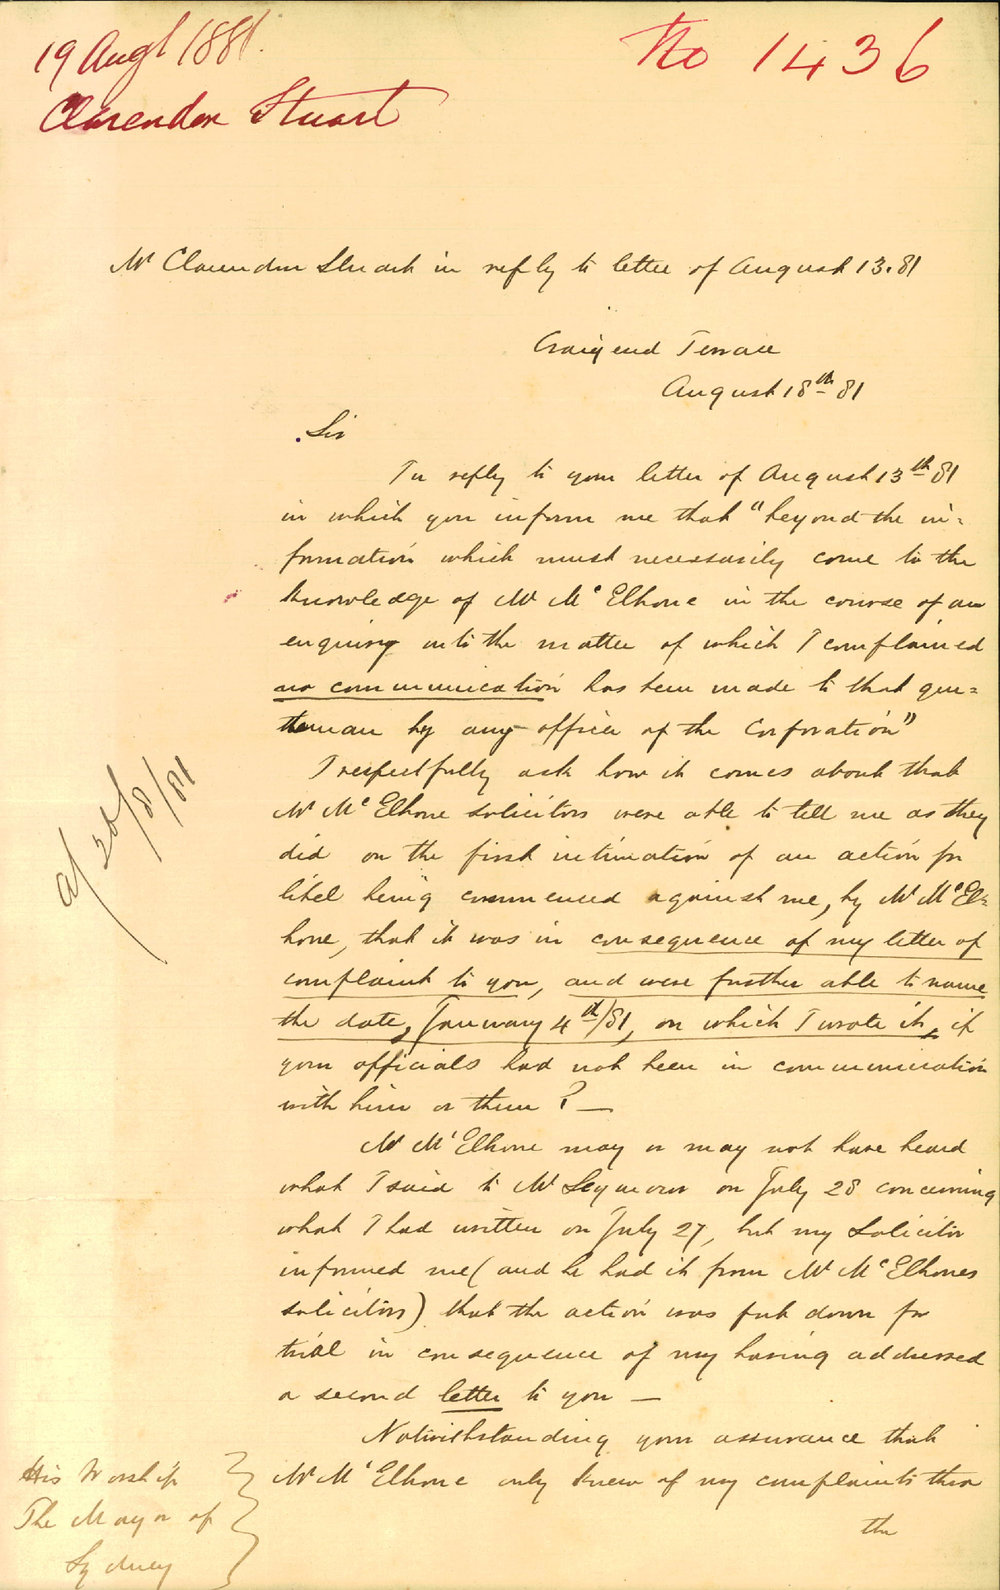 19 Augt 1881.
No 1436
Clarendon Stuart
Mr Clarendon Stuart in reply to letter of August 13.81
Craigend Terrace
August 18th 81
Sir
In reply to your letter of August 13th 81
in which you inform me that "beyond the in=
formation which must necessarily come to the
knowledge of Mr McElhone in the course of an
enquiry into the matter of which I complained
no communication has been made to that gen=
tleman by any officer of the Corporation"
I respectfully ask how it comes about that
Mr McElhone solicitors were able to tell me as they
did on the first intimation of an action for
libel being commenced against me, by Mr McEl=
hone, that it was in consequence of my letter of
complaint to you, and were further able to name
the date, January 4th/81, on which I wrote it, if
your officials had not been in communication
with him or them? —
Mr McElhone may or may not have heard
what I said to Mr Seymour on July 28 concerning
what I had written on July 27, but my Solicitor
informed me (and he had it from Mr McElhones
solicitors) that the action was put down for
trial in consequence of my having addressed
a second letter to you —
Notwithstanding your assurance that
Mr McElhone only knew of my complaints thro
the
20/8/81
His Worship
The Mayor of
Sydney